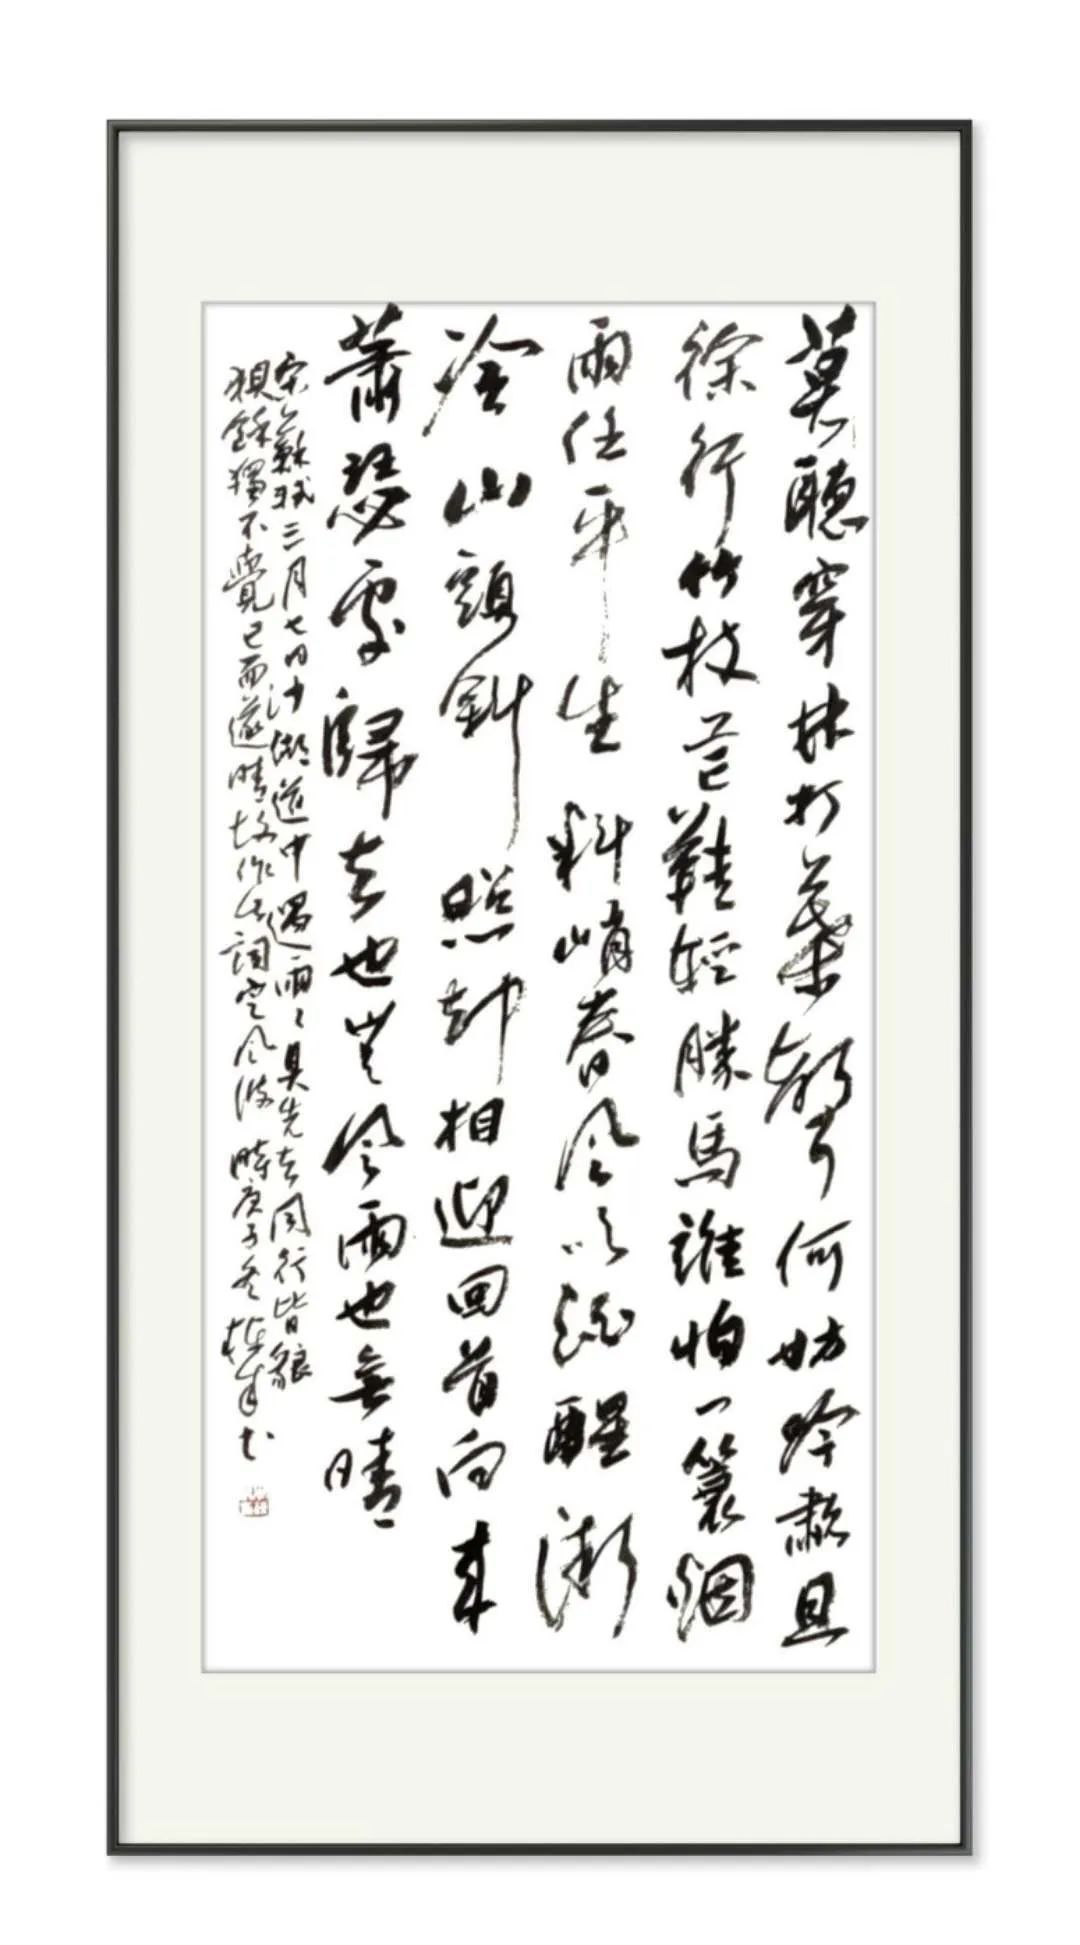 莫聽穿林打葉聲何妨吟嘯且
徐行竹杖芒鞋輕勝馬誰怕一蓑烟
雨任平生料峭春風吹酒醒微
冷山頭斜照却相迎回首向來
蕭瑟處歸去也無風雨也無晴
宋蘇軾三月七日沙湖道中遇雨〻具先去同行皆狼
狽餘獨不覺已而遂晴故作此詞定風波 時庚子冬 書